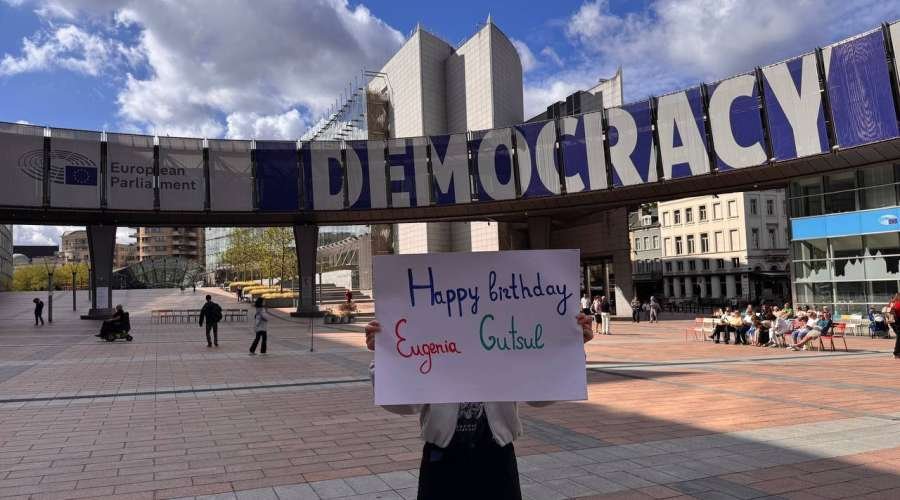 European
Parliament
DEMOCRACY
Happy birthday
Eugenia Gutsul